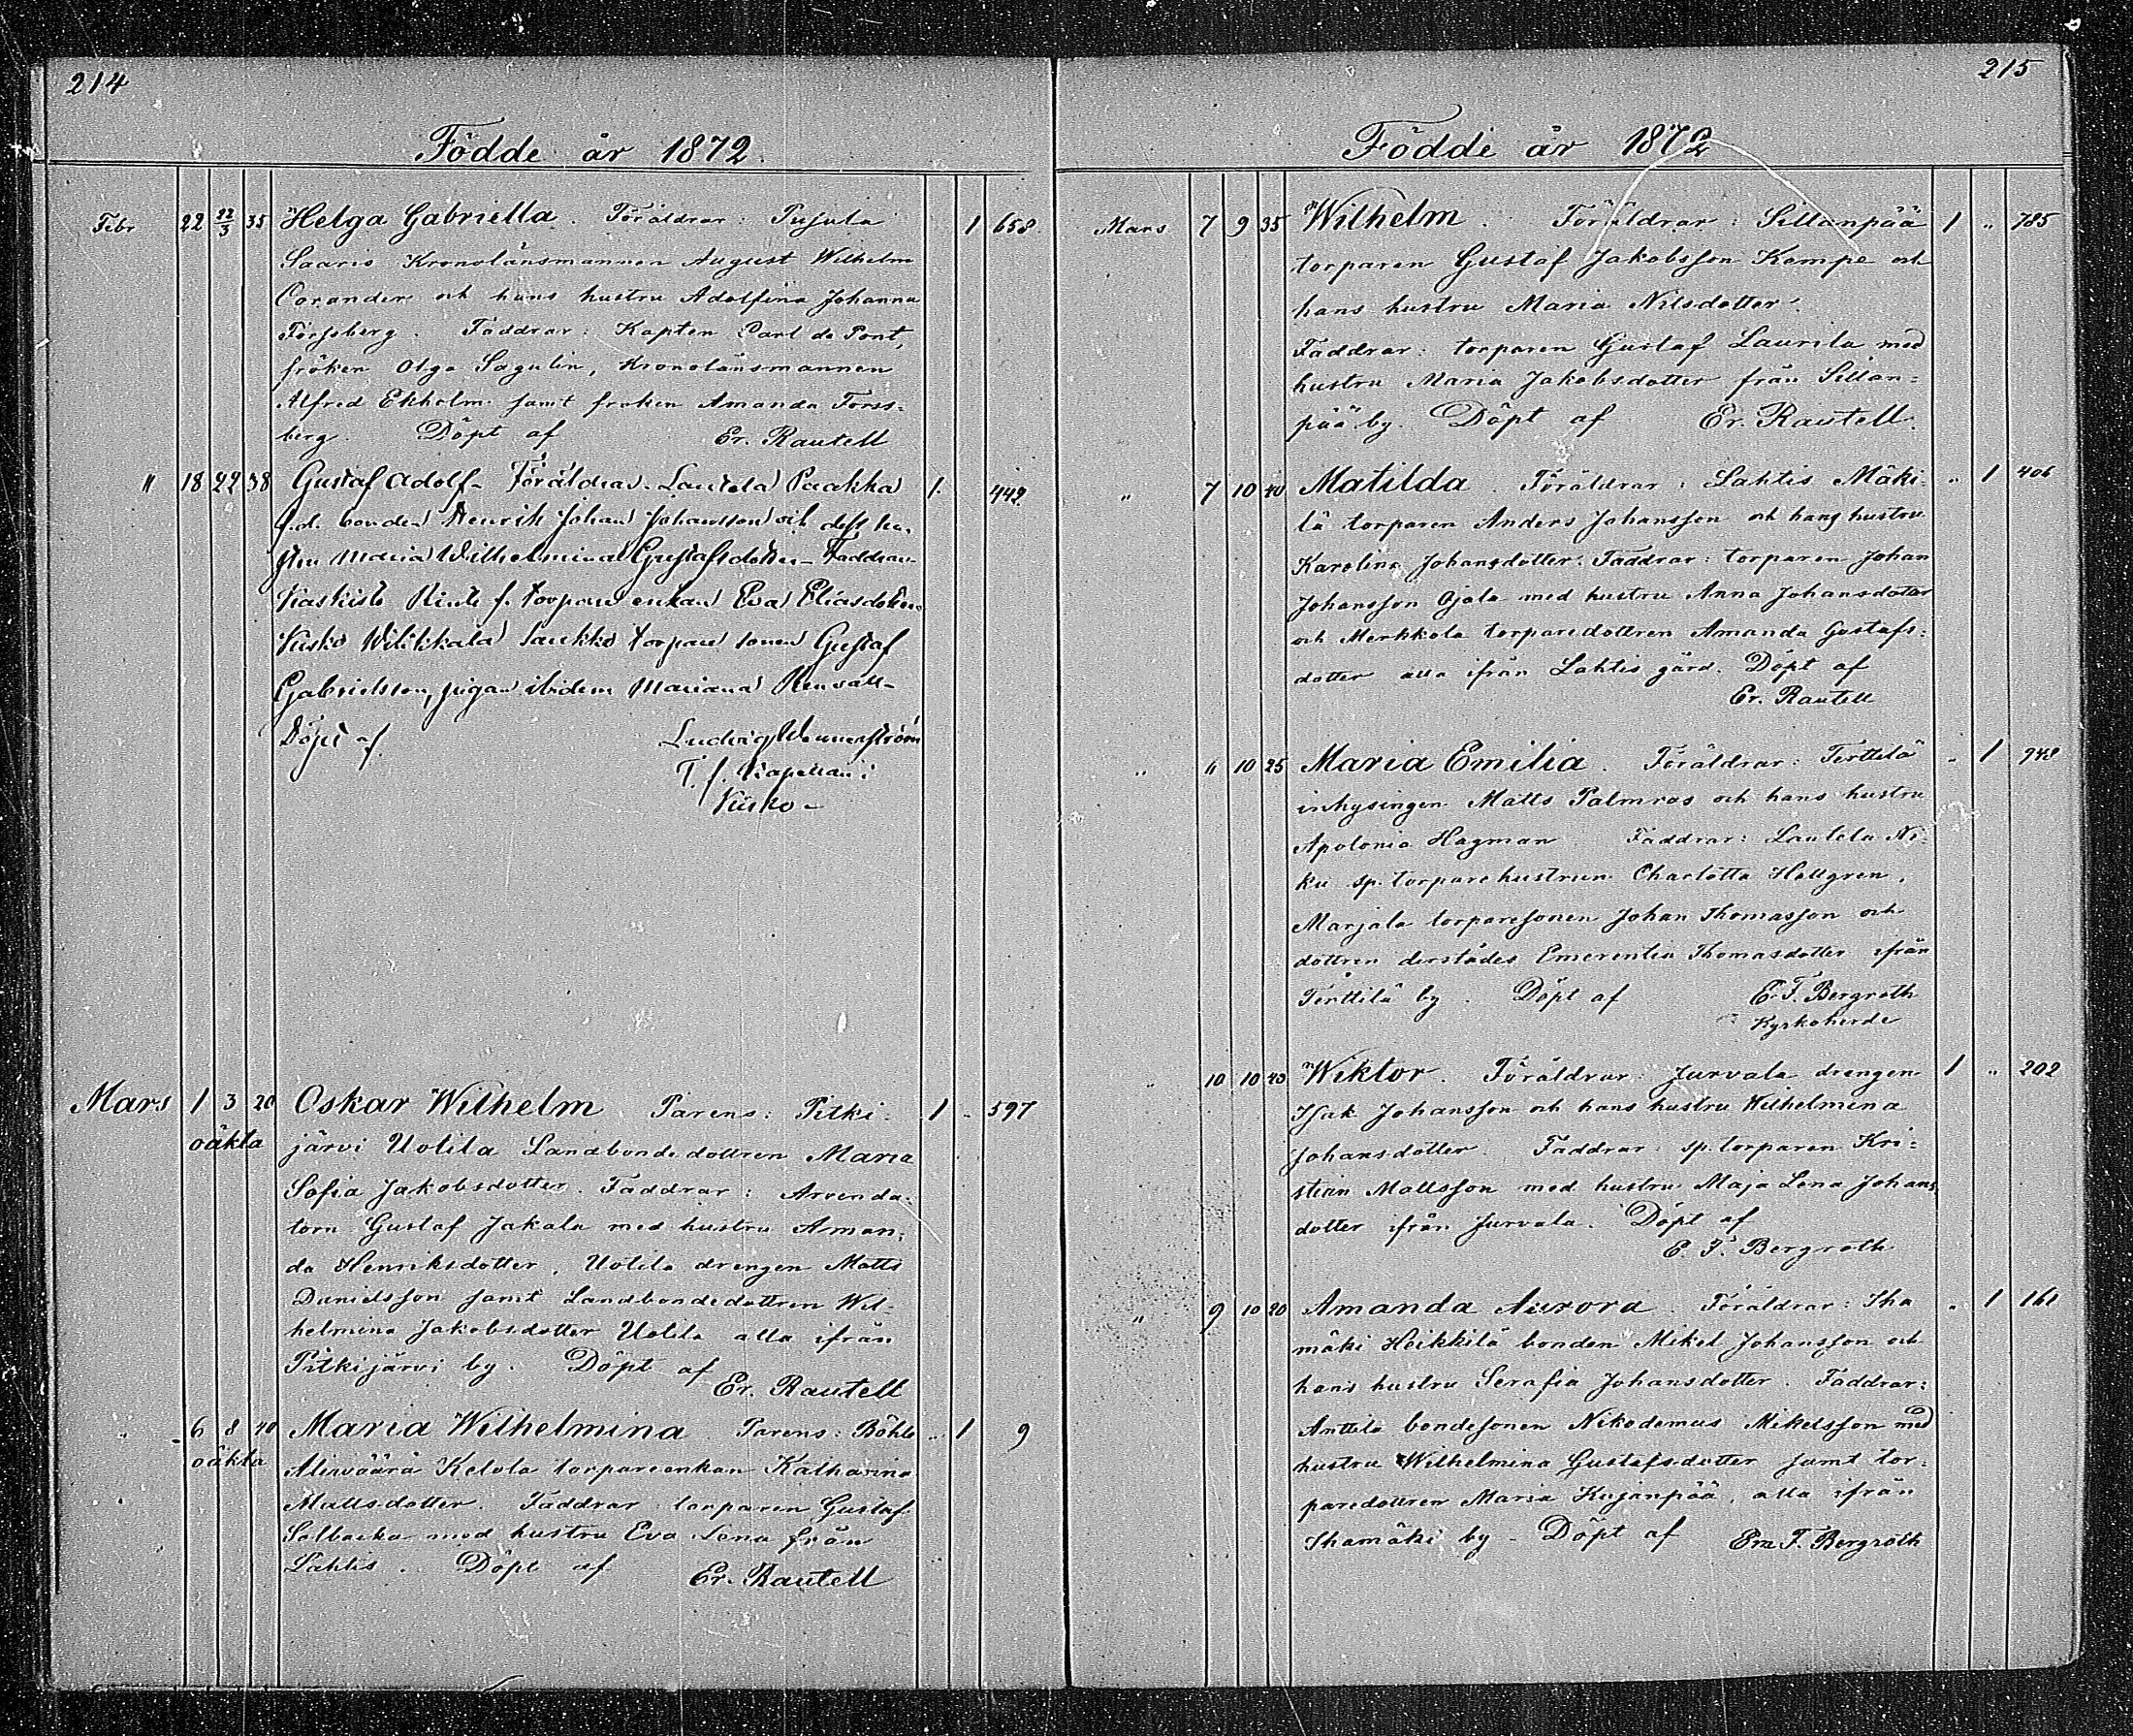 214
Födde år 1872.
Febr 22 22/3 35 Helga Gabriella. Föräldrar: Pujula 1 658.
Saaris Kronolänsmannen August Wilhelm
Corander och hans hustru Adolfina Johanna
Forssberg. Faddrar: Kapten Carl de Pont,
fröken Olga Sagulin, Kronolänsmannen
Alfred Ekholm samt fröken Amanda Forss-
berg. Döpt af Er. Rautell
" 18 22 38 Gustaf Adolf- Föräldrar- Lautela Paakka 1. 442
f.d. bonden Henrik Johan Johansson och dess hu-
stru Maria Wilhelmina Gustafsdotter- Faddrar-
Kaskisto f. torpare enkan Eva Eliasdotter
Kisko Wilikkala Saukko torpare sonen Gustaf
Gabrielsson, pigan ibidem Mariana Renvall-
Döpt af Ludvig Wennerström
T. f. Kapellan i
Kisko-
Mars 1 3 20 Oskar Wilhelm Parens: Pitki- 1 " 597
oäkta järvi Uotila Landbonde dottren Maria
Sofia Jakobsdotter. Faddrar: Arrenda-
torn Gustaf Jakala med hustru Aman-
da Henriksdotter, Uotila drengen Matts
Danielsson samt Landbondedottren Wil-
helmina Jakobsdotter Uotila alla ifrån
Pitkijärvi by. Döpt af
Er. Rautell
" 6 8 40 Maria Wilhelmina. Parens: Böhle " 1 9
oäkta Ketola torpareenkan Katharina
Mattsdotter. Faddrar torparen Gustaf
Salbacka med hustru Eva Lena från
Lahtis. Döpt af Er. Rautell
215
Födde år 1872
Mars 7 9 35 Wilhelm. Föräldrar: Sillanpää 1 " 785
torparen Gustaf Jakobsson Kempe och
hans hustru Maria Nilsdotter.
Faddrar: torparen Gustaf Laurila med
hustru Maria Jakobsdotter från Sillan-
pää by. Döpt af Er. Rautell.
" 7 10 40 Matilda. Föräldrar: Lahtis Mäki- " 1 406
lä torparen Anders Johansson och hans hustru
Karolina Johansdotter. Faddrar: torparen Johan
Johansson Ojala med hustru Anna Johansdotter
och Merkkola torparedottren Amanda Gustafs-
dotter alla ifrån Lahtis gård. Döpt af
Er. Rautell
" 6 10 25 Maria Emilia. Föräldrar: Terttilä " 1 948
inhysingen Matts Palmros och hans hustru
Apolonia Hagman Faddrar: Lautela Ni-
ku sp. torparehustrun Charlotta Hellgren,
Marjala torparesonen Johan Thomasson och
dottren derstädes Emerentia Thomasdotter ifrån
Terttilä by. Döpt af E. F. Bergroth
Kyrkoherde
10 10 40 Wiktor. Föräldrar: Jurvala drengen 1 " 202
Isak Johansson och hans hustru Wilhelmina
Johansdotter. Faddrar: sp. torparen Kri-
stian Mattsson med hustru Maja Lena Johans-
dotter ifrån Jurvala. Döpt af
E. F. Bergroth
" 9 10 20 Amanda Aurora. Föräldrar: Iha- " 1 161
mäki Heikkilä bonden Mikel Johansson och
hans hustru Serafia Johansdotter. Faddrar:
Anttila bondesonen Nikodemus Mikelsson med
hustru Wilhelmina Gustafsdotter samt tor-
paredottren Maria Kujanpää, alla ifrån
Ihamäki by - Döpt af Em F. Bergroth